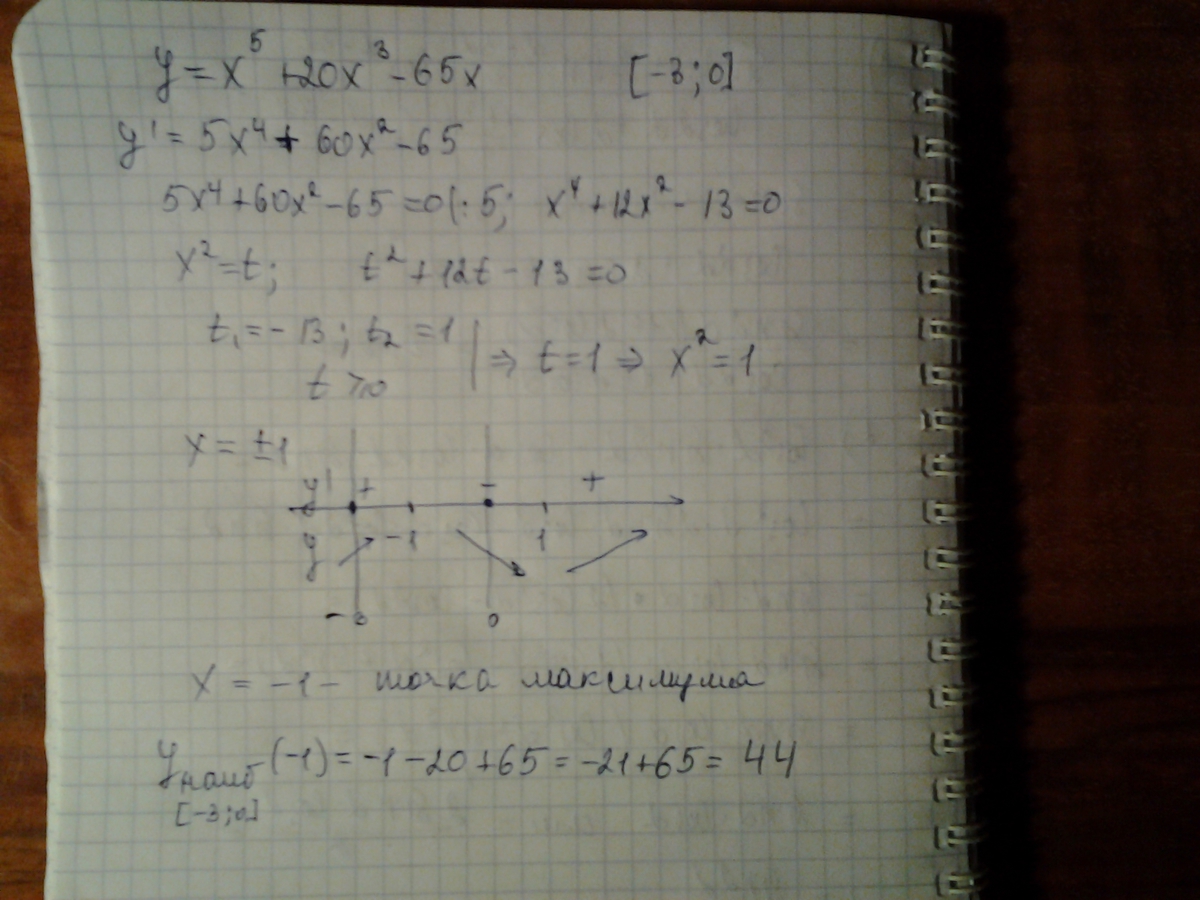 y = x⁵ + 20x³ - 65x [-3; 0]
y' = 5x⁴ + 60x² - 65
5x⁴ + 60x² - 65 = 0 |: 5; x⁴ + 12x² - 13 = 0
x² = t; t² + 12t - 13 = 0
t₁ = - 13; t₂ = 1 | ⇒ t = 1 ⇒ x² = 1
t ≥ 0
x = ±1
y' + - +
y -1 1
-3 0
x = -1 - точка максимума
y наиб (-1) = -1 - 20 + 65 = -21 + 65 = 44
[-3; 0]